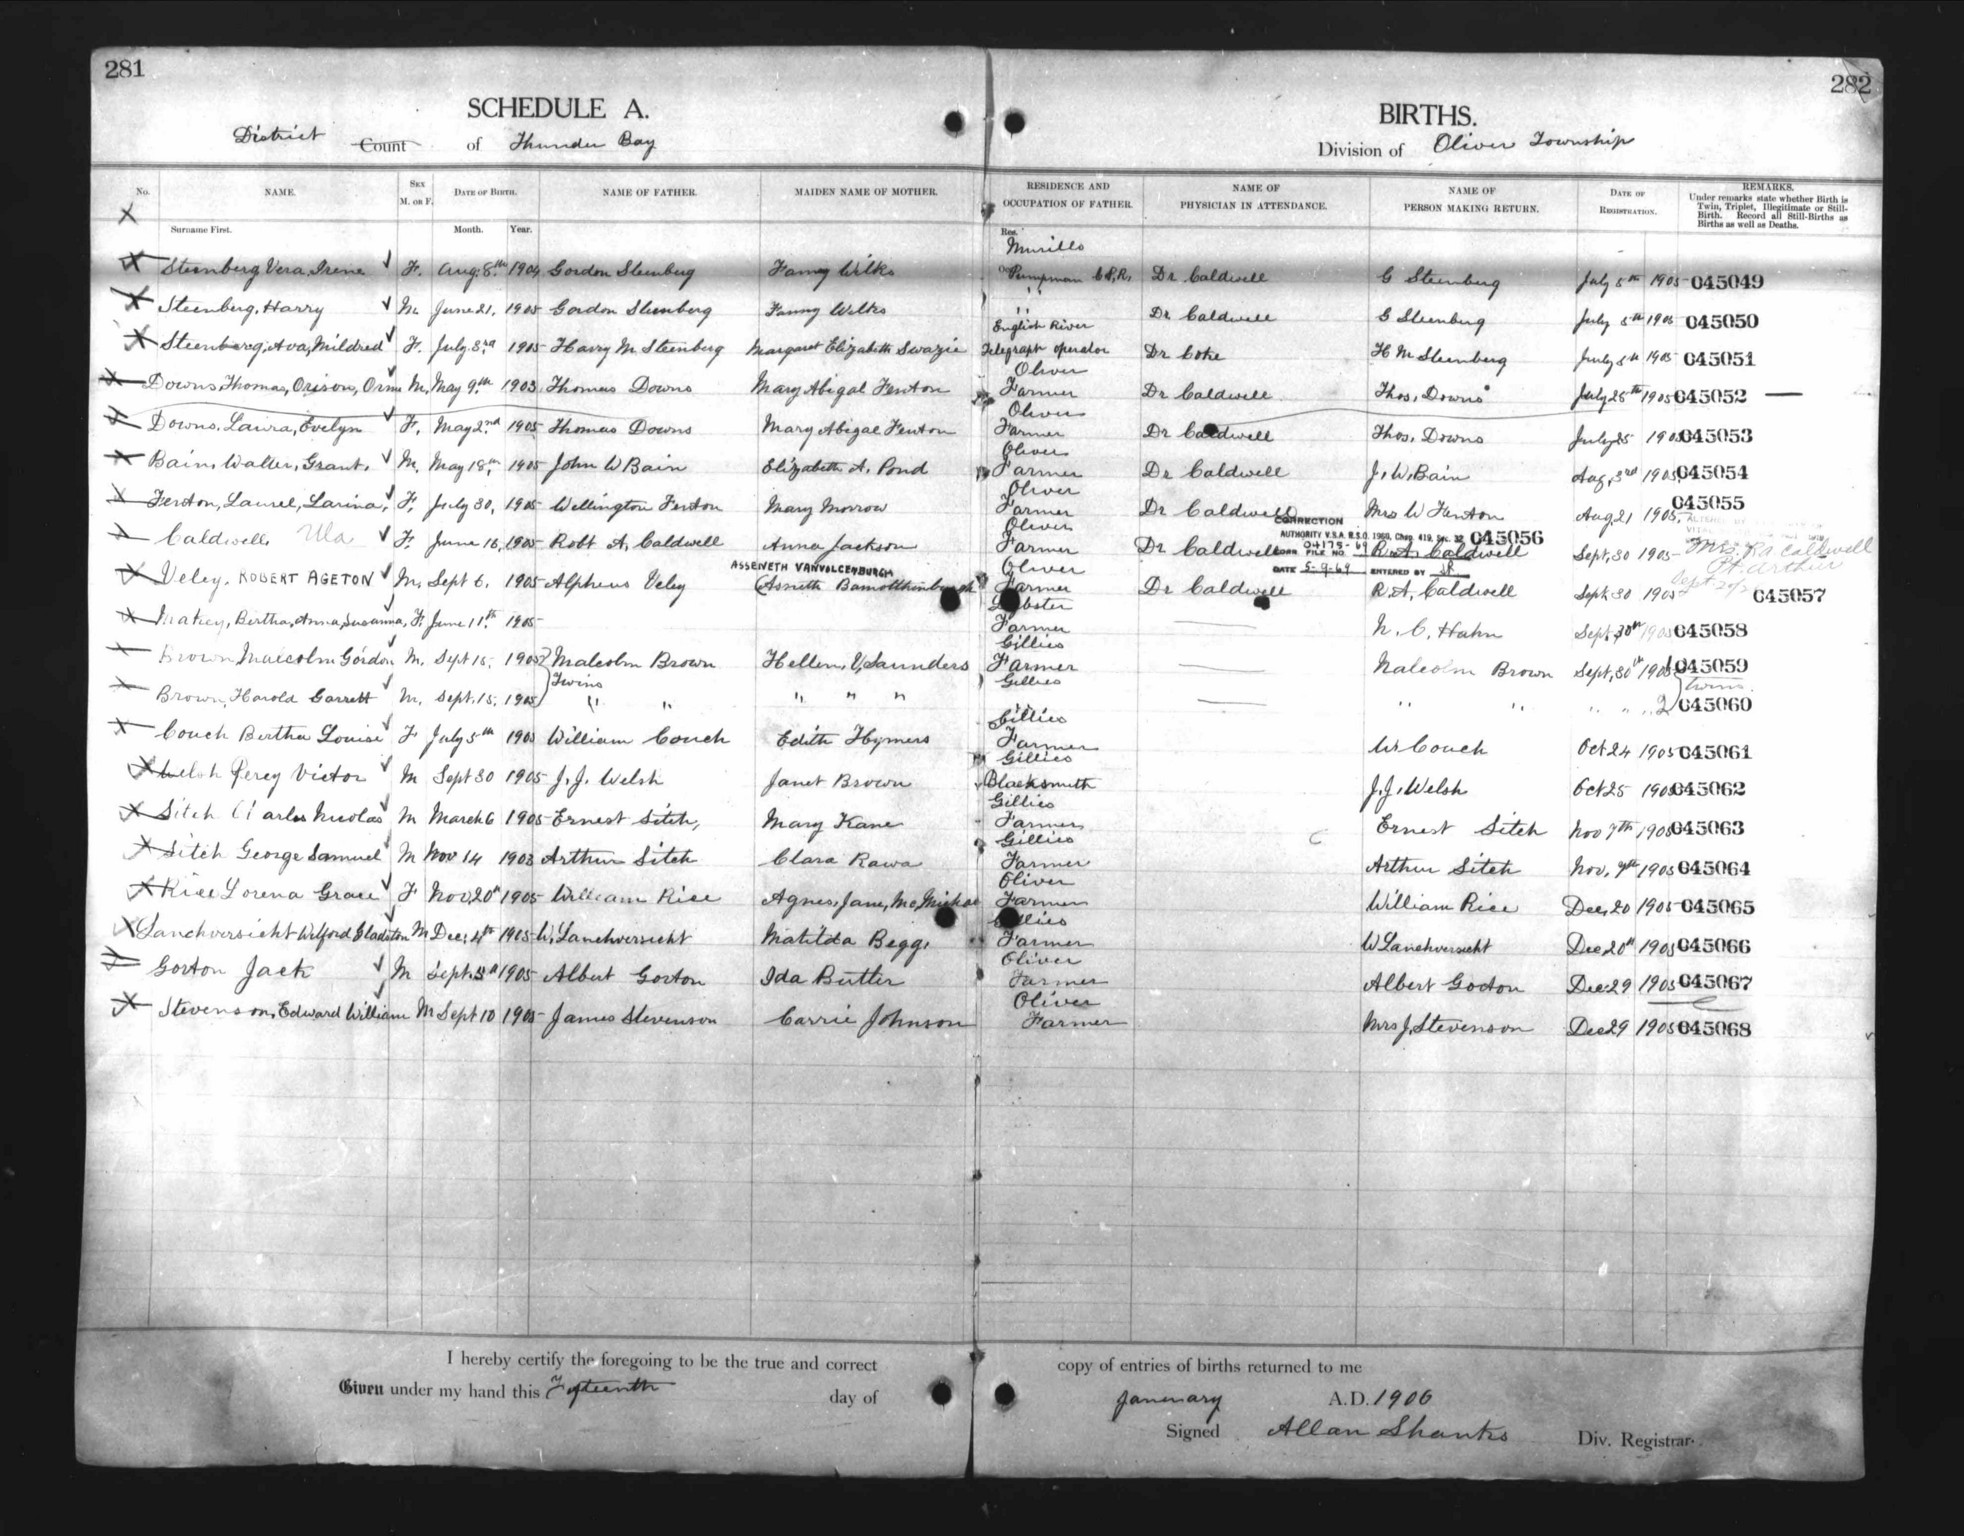 281
282
SCHEDULE A.
BIRTHS.
District Count of Thunder Bay
Division of Oliver Township
No. NAME. SEX M. OR F. DATE OF BIRTH. NAME OF FATHER. MAIDEN NAME OF MOTHER. RESIDENCE AND OCCUPATION OF FATHER. NAME OF PHYSICIAN IN ATTENDANCE. NAME OF PERSON MAKING RETURN. DATE OF REGISTRATION. REMARKS.
Under remarks state whether Birth is Twin, Triplet, Illegitimate or Still-Birth. Record all Still-Births as Births as well as Deaths.
Surname First. Month. Year. Res.
Murillo
Steenberg Vera, Irene F. Aug. 8th 1904 Gordon Steenberg Fanny Wilks Occ. Pumpman C.P.R. Dr Caldwell G Steenberg July 5th 1905 045049
Steenberg, Harry M. June 21, 1905 Gordon Steenberg Fanny Wilks " " Dr Caldwell G Steenberg July 5th 1905 045050
English River
Steenberg, Ava, Mildred F. July 3rd 1905 Harry M Steenberg Margaret Elizabeth Swazie Telegraph operator Dr Coke H M Steenberg July 5th 1905 045051
Oliver
Downs, Thomas, Orison, Orme M. May 9th 1903 Thomas Downs Mary Abigal Fenton Farmer Dr Caldwell Thos. Downs July 25th 1905 045052 —
Oliver
Downs, Laura, Evelyn F. May 2nd 1905 Thomas Downs Mary Abigal Fenton Farmer Dr Caldwell Thos. Downs July 25 1905 045053
Oliver
Bain, Walter, Grant, M. May 18th 1905 John W Bain Elizabeth A. Pond Farmer Dr Caldwell J. W. Bain Aug. 3rd 1905 045054
Oliver
Fenton, Laurel, Larina, F. July 30, 1905 Wellington Fenton Mary Morrow Farmer Dr Caldwell Mrs W Fenton Aug 21 1905 045055
Oliver CORRECTION
AUTHORITY V.S.A. R.S.O. 1960, Chap. 419, Sec. 32 045056
Caldwell, Ula F. June 16, 1905 Robt A. Caldwell Anna Jackson Farmer Dr Caldwell CORR FILE NO. 04175-69 R. A. Caldwell Sept. 30 1905 Mrs. R A Caldwell
Pt. Arthur
ASSENETH VANVOLCENBURGH Oliver DATE 5-9-69 ENTERED BY
Veley, ROBERT AGETON M. Sept 6, 1905 Alpheus Veley Farmer Dr Caldwell R. A. Caldwell Sept 30 1905 045057
Makey, Bertha, Anna, Susanna, F. June 11th 1905 Farmer — N. C. Hahn Sept. 30th 1905 045058
Gillies
Brown, Malcolm Gordon M. Sept 15, 1905 Malcolm Brown Hellen, V, Saunders Farmer — Malcolm Brown Sept. 30th 1905 1 045059
Twins Gillies twins.
Brown, Harold Garrett M. Sept. 15, 1905 " " " " " " " — " " " " " 2 045060
Gillies
Couch Bertha Louise F July 5th 1905 William Couch Edith Hymers Farmer W Couch Oct 24 1905 045061
Gillies
Welsh Percy Victor M Sept 30 1905 J. J. Welsh Janet Brown Blacksmith J. J. Welsh Oct 25 1905 045062
Gillies
Sitch Charles Nicolas M March 6 1905 Ernest Sitch, Mary Kane Farmer Ernest Sitch Nov 7th 1905 045063
Gillies
Sitch George Samuel M Nov 14 1903 Arthur Sitch Clara Rawa Farmer Arthur Sitch Nov. 7th 1905 045064
Oliver
Rice Lorena Grace F Nov. 20th 1905 William Rice Agnes, Jane, Farmer William Rice Dec. 20 1905 045065
Gillies
Lanchversicht Wilford Gladston M Dec. 4th 1905 W. Lanchversicht Matilda Beggs Farmer W Lanchversicht Dec 20th 1905 045066
Oliver
Gorton Jack M Sept. 5th 1905 Albert Gorton Ida Butler Farmer Albert Gorton Dec 29 1905 045067
Oliver
Stevenson, Edward William M Sept 10 1905 James Stevenson Carrie Johnson Farmer Mrs J. Stevenson Dec 29 1905 045068
I hereby certify the foregoing to be the true and correct copy of entries of births returned to me
Given under my hand this Fifteenth day of January A.D. 1906
Signed Allan Shanks Div. Registrar.